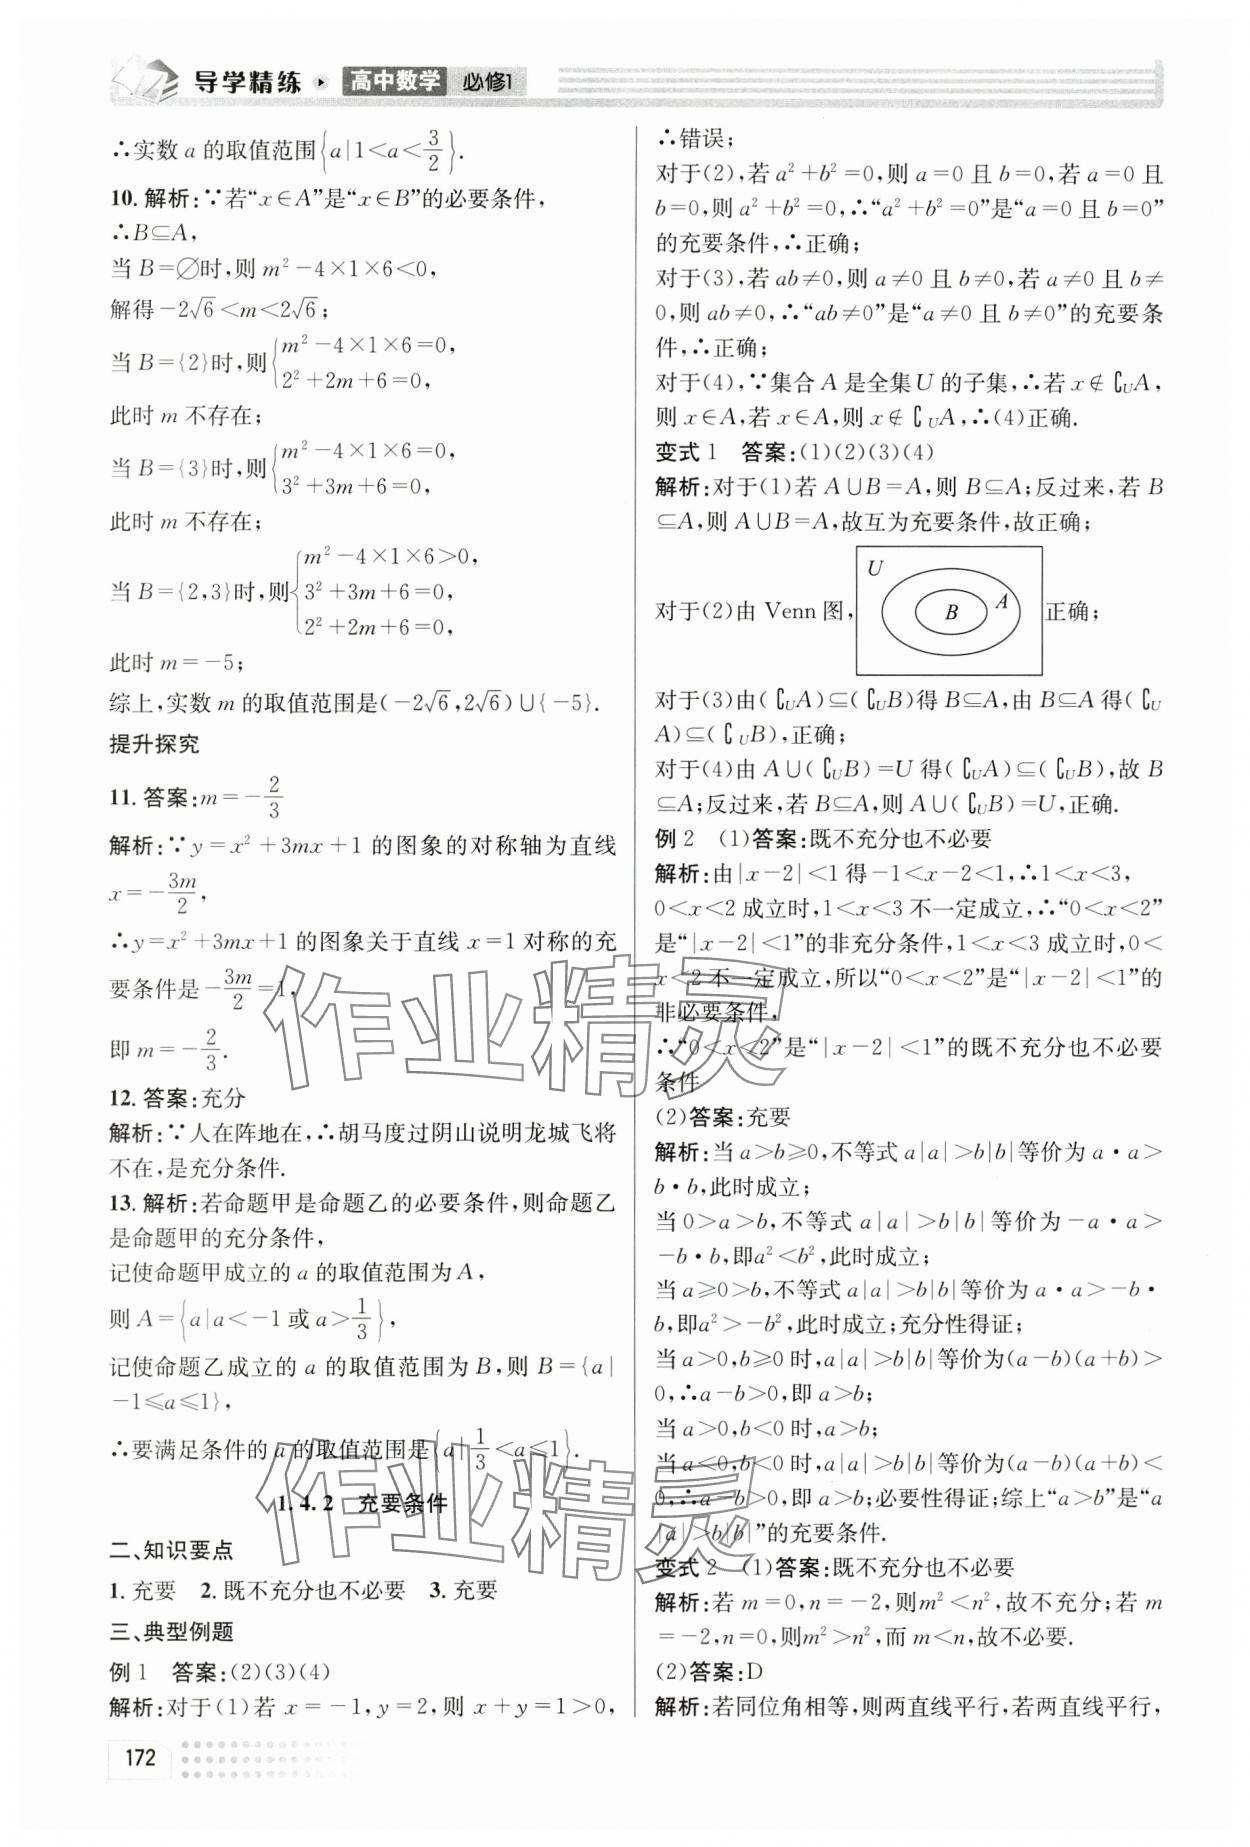 导学精练 高中数学 必修1
∴实数 a 的取值范围{a|1<a<3/2}.
10. 解析:∵若“x∈A”是“x∈B”的必要条件,
∴B⊆A,
当 B=∅时,则 m²-4×1×6<0,
解得-2√6<m<2√6;
当 B={2}时,则{m²-4×1×6=0,
2²+2m+6=0,
此时 m 不存在;
当 B={3}时,则{m²-4×1×6=0,
3²+3m+6=0,
此时 m 不存在;
当 B={2,3}时,则{m²-4×1×6>0,
3²+3m+6=0,
2²+2m+6=0,
此时 m=-5;
综上,实数 m 的取值范围是(-2√6,2√6)∪{-5}.
提升探究
11. 答案:m=-2/3
解析:∵y=x²+3mx+1 的图象的对称轴为直线
x=-3m/2,
∴y=x²+3mx+1 的图象关于直线 x=1 对称的充
要条件是-3m/2=1,
即 m=-2/3.
12. 答案:充分
解析:∵人在阵地在,∴胡马度过阴山说明龙城飞将
不在,是充分条件.
13. 解析:若命题甲是命题乙的必要条件,则命题乙
是命题甲的充分条件,
记使命题甲成立的 a 的取值范围为 A,
则 A={a|a<-1 或 a>1/3},
记使命题乙成立的 a 的取值范围为 B,则 B={a|
-1≤a≤1},
∴要满足条件的 a 的取值范围是{a|1/3<a≤1}.
1.4.2 充要条件
二、知识要点
1. 充要 2. 既不充分也不必要 3. 充要
三、典型例题
例 1 答案:(2)(3)(4)
解析:对于(1)若 x=-1,y=2,则 x+y=1>0,
∴错误;
对于(2),若 a²+b²=0,则 a=0 且 b=0,若 a=0 且
b=0,则 a²+b²=0,∴“a²+b²=0”是“a=0 且 b=0”
的充要条件,∴正确;
对于(3),若 ab≠0,则 a≠0 且 b≠0,若 a≠0 且 b≠
0,则 ab≠0,∴“ab≠0”是“a≠0 且 b≠0”的充要条
件,∴正确;
对于(4),∵集合 A 是全集 U 的子集,∴若 x∉∁UA,
则 x∈A,若 x∈A,则 x∉∁UA,∴(4)正确.
变式 1 答案:(1)(2)(3)(4)
解析:对于(1)若 A∪B=A,则 B⊆A;反过来,若 B
⊆A,则 A∪B=A,故互为充要条件,故正确;
U
对于(2)由 Venn 图, B A 正确;
对于(3)由(∁UA)⊆(∁UB)得 B⊆A,由 B⊆A 得(∁U
A)⊆(∁UB),正确;
对于(4)由 A∪(∁UB)=U 得(∁UA)⊆(∁UB),故 B
⊆A;反过来,若 B⊆A,则 A∪(∁UB)=U,正确.
例 2 (1)答案:既不充分也不必要
解析:由|x-2|<1 得-1<x-2<1,∴1<x<3,
0<x<2 成立时,1<x<3 不一定成立,∴“0<x<2”
是“|x-2|<1”的非充分条件,1<x<3 成立时,0<
x<2 不一定成立,所以“0<x<2”是“|x-2|<1”的
非必要条件,
∴“0<x<2”是“|x-2|<1”的既不充分也不必要
条件
(2)答案:充要
解析:当 a>b≥0,不等式 a|a|>b|b|等价为 a·a>
b·b,此时成立;
当 0>a>b,不等式 a|a|>b|b|等价为-a·a>
-b·b,即a²<b²,此时成立;
当 a≥0>b,不等式 a|a|>b|b|等价为 a·a>-b·
b,即a²>-b²,此时成立;充分性得证;
当 a>0,b≥0 时,a|a|>b|b|等价为(a-b)(a+b)>
0,∴a-b>0,即 a>b;
当 a>0,b<0 时,a>b;
当 a<0,b<0 时,a|a|>b|b|等价为(a-b)(a+b)<
0,∴a-b>0,即 a>b;必要性得证;综上“a>b”是“a
|a|>b|b|”的充要条件.
变式 2 (1)答案:既不充分也不必要
解析:若 m=0,n=-2,则m²<n²,故不充分;若 m
=-2,n=0,则m²>n²,而 m<n,故不必要.
(2)答案:D
解析:若同位角相等,则两直线平行,若两直线平行,
172
作业精灵
作业精灵